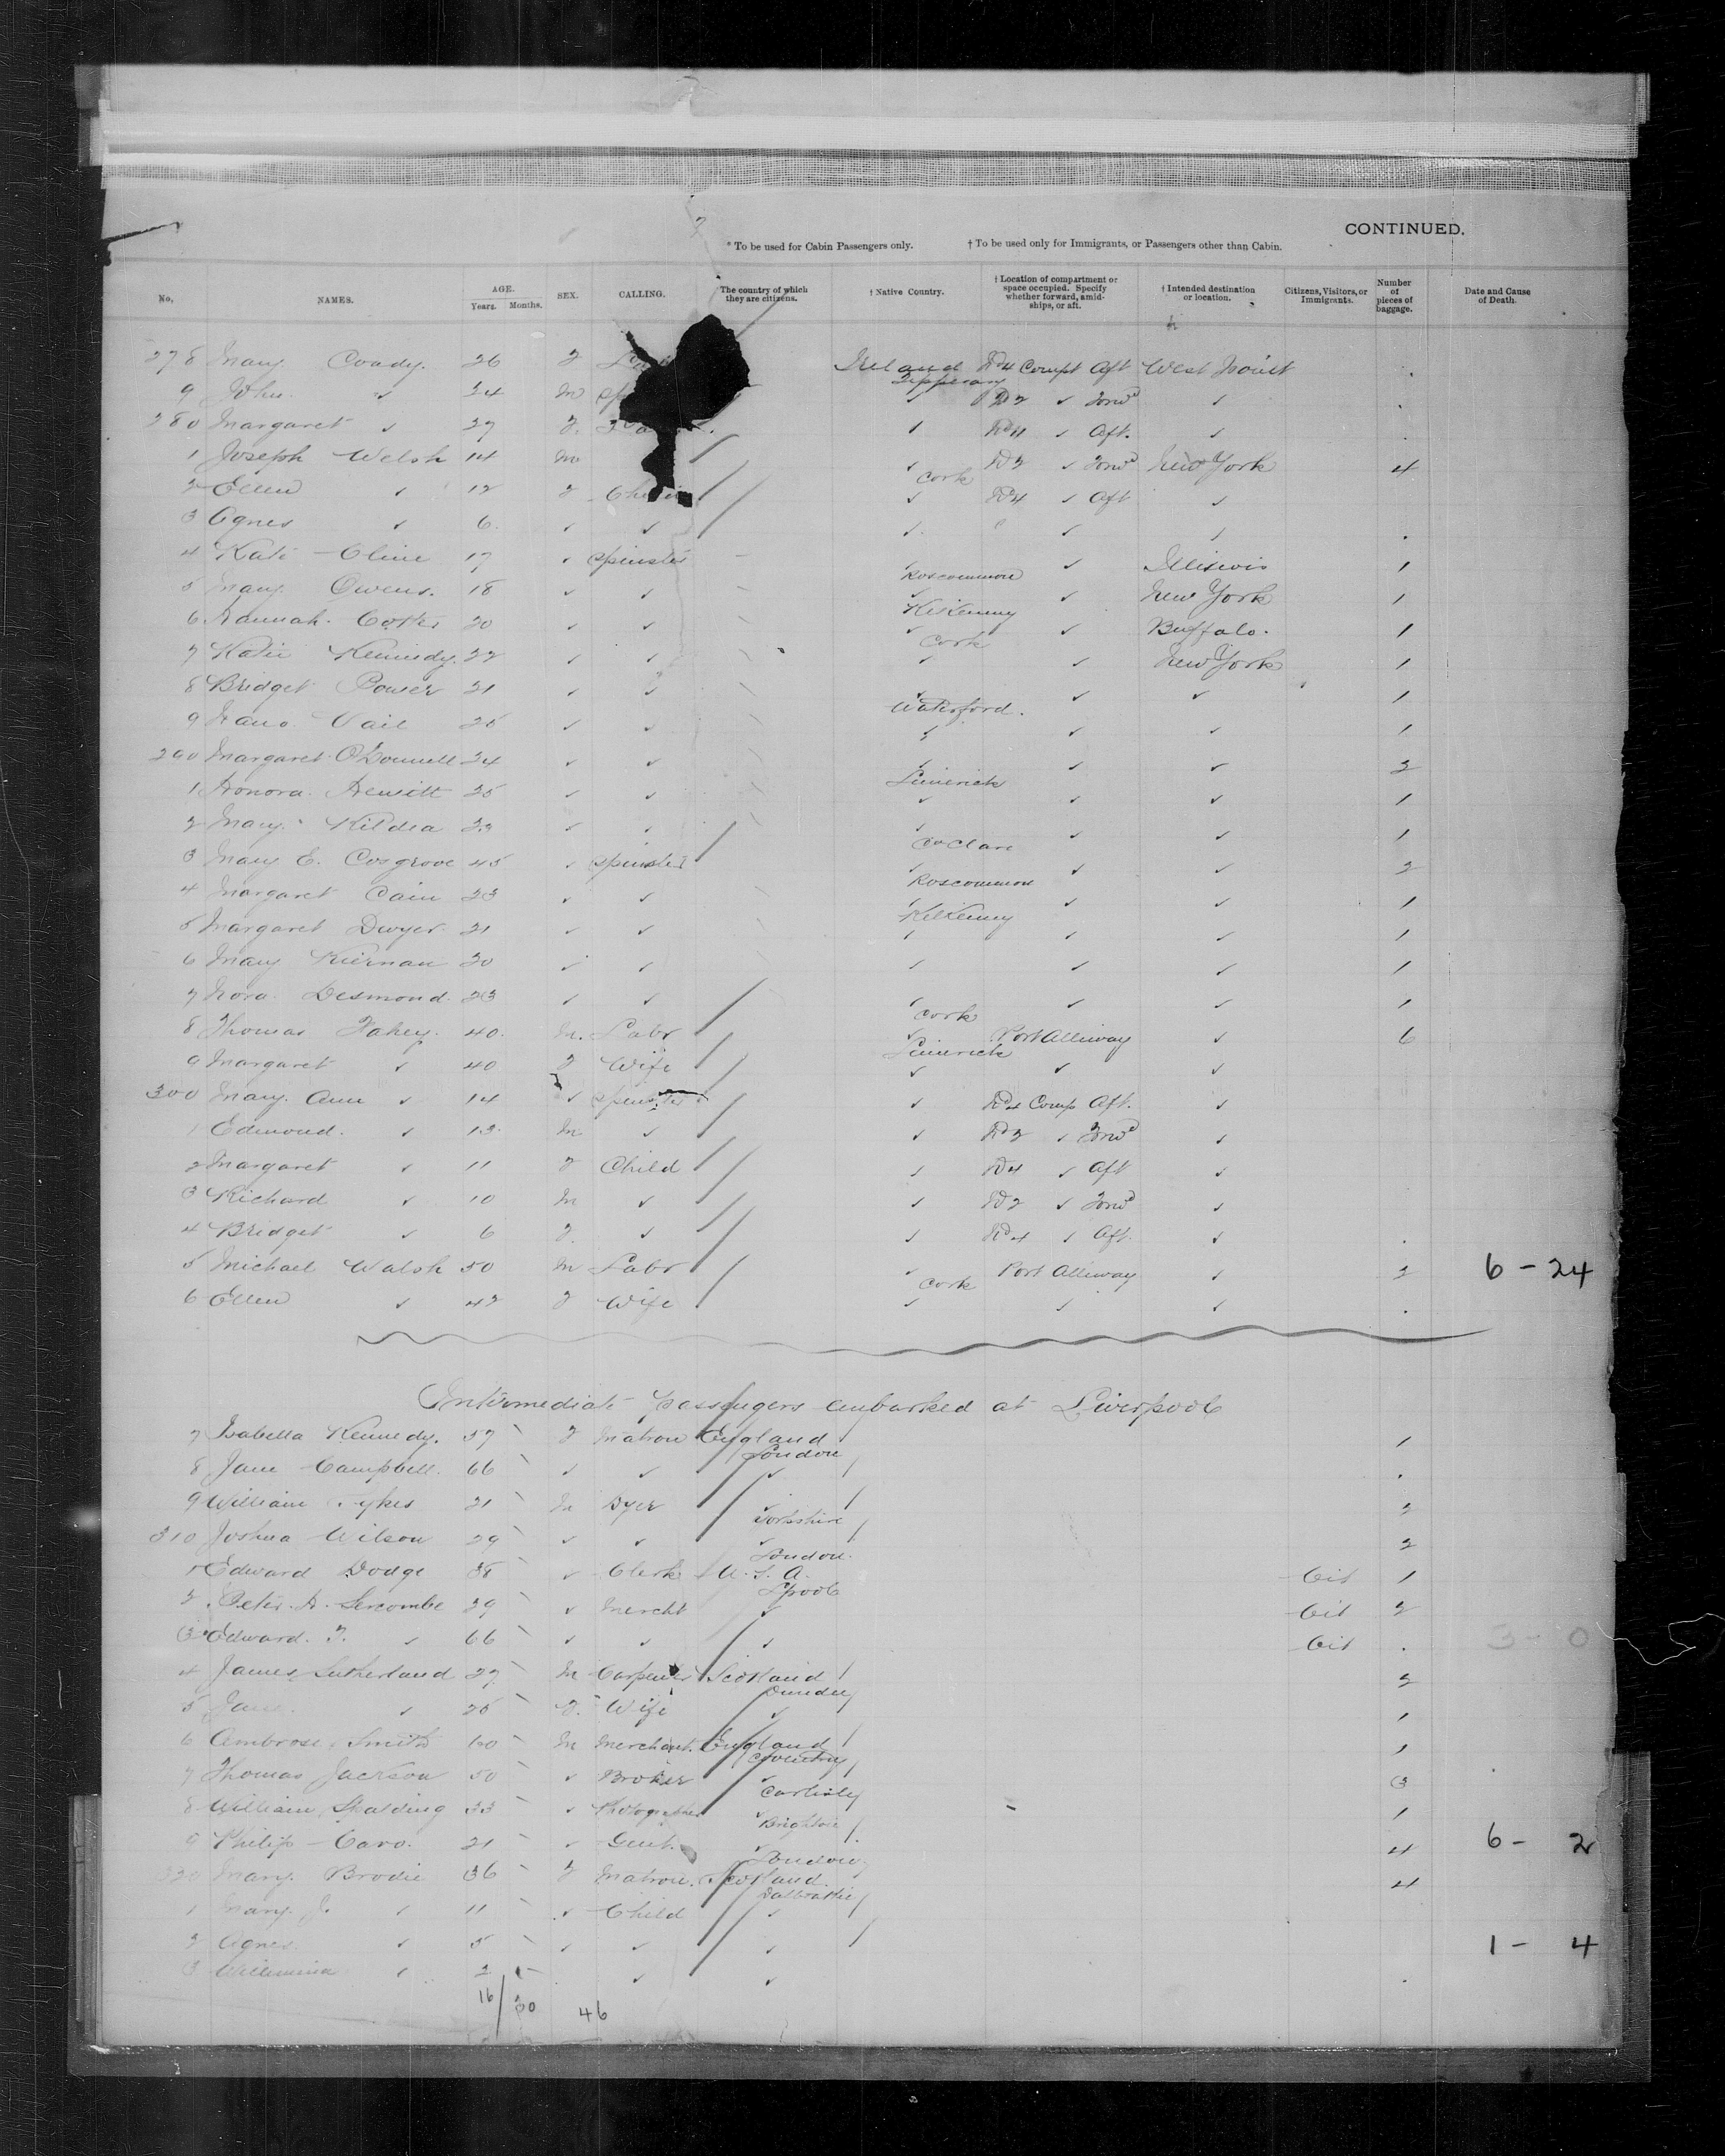 CONTINUED.
* To be used for Cabin Passengers only. † To be used only for Immigrants, or Passengers other than Cabin.
No. NAMES. AGE. Years. Months. SEX. CALLING. The country of which they are citizens. † Native Country. † Location of compartment or space occupied. Specify whether forward, amidships, or aft. † Intended destination or location. Citizens, Visitors, or Immigrants. Number of pieces of baggage. Date and Cause of Death.
278 Mary Coady. 26 F Ireland Tipperary No 4 Compt Aft West Point
9 John ✓ 24 M ✓ No 2 ✓ Forwd ✓
280 Margaret ✓ 27 F. ✓ No 4 ✓ Aft. ✓
1 Joseph Welsh 14 M ✓ Cork No 2 ✓ Forwd New York 4
2 Ellen ✓ 12 F ✓ No 4 ✓ Aft ✓
3 Agnes ✓ 6 ✓ ✓ ✓ ✓ ✓
4 Kate Cline 17 ✓ Spinster ✓ Roscommon ✓ Illinois 1
5 Mary Owens. 18 ✓ ✓ ✓ Kilkenny ✓ New York 1
6 Hannah 20 ✓ ✓ ✓ Cork ✓ Buffalo. 1
7 Katie Kennedy. 22 ✓ ✓ ✓ ✓ New York 1
8 Bridget Power 21 ✓ ✓ ✓ Waterford. ✓ ✓ 1
9 Vail 25 ✓ ✓ ✓ ✓ ✓ 1
290 Margaret O'Donnell 24 ✓ ✓ ✓ Limerick ✓ ✓ 2
1 Honora Hewitt 25 ✓ ✓ ✓ ✓ ✓ 1
2 Mary Kildea 22 ✓ ✓ ✓ Co Clare ✓ ✓ 1
3 Mary E. Cosgrove 45 ✓ Spinster ✓ Roscommon ✓ ✓ 2
4 Margaret Cain 23 ✓ ✓ ✓ Kilkenny ✓ ✓ 1
5 Margaret Dwyer 21 ✓ ✓ ✓ ✓ ✓ 1
6 Mary Kiernan 20 ✓ ✓ ✓ ✓ ✓ 1
7 Nora Desmond. 23 ✓ ✓ ✓ Cork ✓ ✓ 1
8 Thomas Fahey. 40. M. Labr ✓ Limerick Port Alleway ✓ 6
9 Margaret ✓ 40 F Wife ✓ ✓ ✓
300 Mary Ann ✓ 14 ✓ Spinster ✓ No 4 Comp Aft. ✓
1 Edmond. ✓ 12 M ✓ ✓ No 2 ✓ Forwd ✓
2 Margaret ✓ 11 F Child ✓ No 4 ✓ Aft ✓
3 Richard ✓ 10 M ✓ ✓ No 2 ✓ Forwd ✓
4 Bridget ✓ 6 F. ✓ ✓ No 4 ✓ Aft. ✓
5 Michael Walsh 50 M Labr ✓ Cork Port Alleway ✓ 2 6 - 24
6 Ellen ✓ 42 F Wife ✓ ✓ ✓
Intermediate passengers embarked at Liverpool
7 Isabella Kennedy. 57 F Matron England London 1
8 Jane Campbell. 66 ✓ ✓ ✓
9 William Sykes 21 M Dyer ✓ Yorkshire 2
310 Joshua Wilson 29 ✓ ✓ ✓ London. 2
1 Edward Dodge 38 ✓ Clerk U. S. A. Lpool Cit 1
2 Peter H. Sercombe 29 ✓ Mercht ✓ Cit 2
3 Edward. F. ✓ 66 ✓ ✓ ✓ Cit 3 - 0
4 James Sutherland 27 M Carpenter Scotland Dundee 2
5 Jane ✓ 25 F. Wife ✓ 1
6 Ambrose Smith 60 M Merchant. England Coventry 1
7 Thomas Jackson 50 ✓ Broker ✓ Carlisle 3
8 William Skalding 33 ✓ Photographer ✓ Brighton 1
9 Philip Caro. 21 ✓ Gent. ✓ London 4 6 - 2
320 Mary Brodie 36 F Matron. Scotland. Dalbeattie 4
1 Mary J. ✓ 11 ✓ Child ✓
2 Agnes ✓ 5 ✓ ✓ ✓ 1 - 4
3 Willimina ✓ 2 ✓ ✓
16/30 46